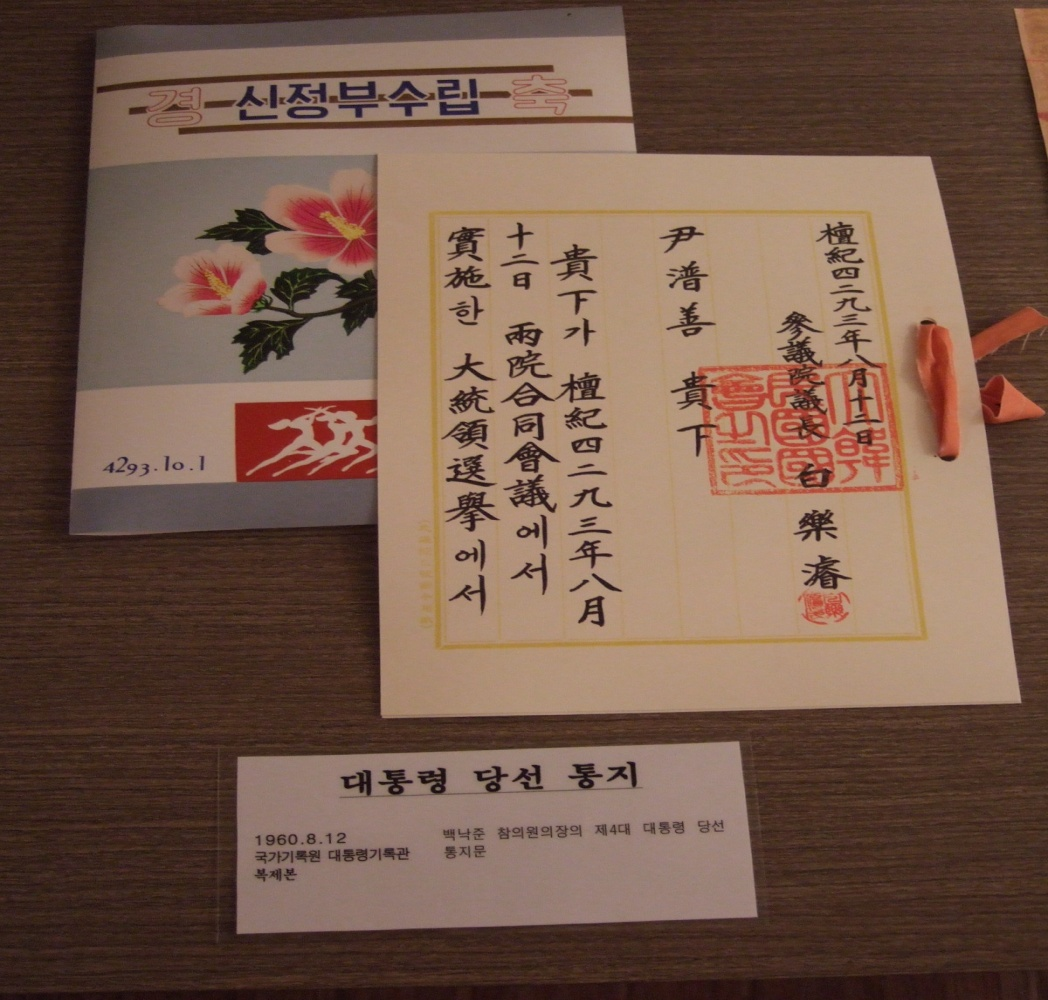 경 신정부수립 축
4293.10.1
檀紀四二九三年八月十二日
參議院議長 白樂濬
尹潽善 貴下
貴下가 檀紀四二九三年八月
十二日 兩院合同會議에서
實施한 大統領選擧에서
대통령 당선 통지
1960.8.12
국가기록원 대통령기록관
복제본
백낙준 참의원의장의 제4대 대통령 당선
통지문